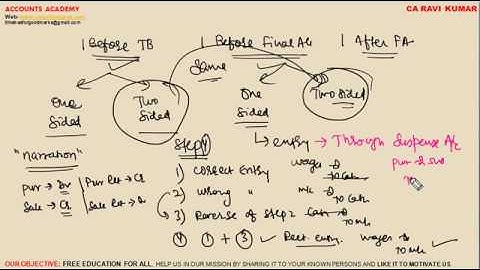 ACCOUNTS ACADEMY
CA RAVI KUMAR
1 Before TB
1 Before Final A/c
1 After FA
Same
One Sided
Two Sided
One Sided
Two Sided
entry → Through suspense A/c
"narration"
Step 4
Pur → Dr
Pur Ret → Cr
Sale → Cr
Sale Ret → Dr
1) Correct Entry
wages Dr
To Cash
2) wrong "
m/c Dr
To Cash
3) Reverse of Step 2
Cash Dr
To m/c
4 1 + 3 ✓ Rect. entry.
wages Dr
To m/c ✓
OUR OBJECTIVE: FREE EDUCATION FOR ALL, HELP US IN OUR MISSION BY SHARING IT TO YOUR KNOWN PERSONS AND LIKE IT TO MOTIVATE US